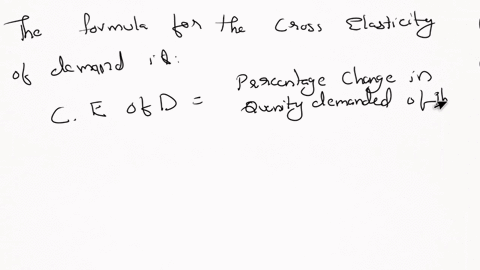 The formula for the Cross Elasticity
of demand is:
C. E of D = Percentage Change in
Quantity demanded of